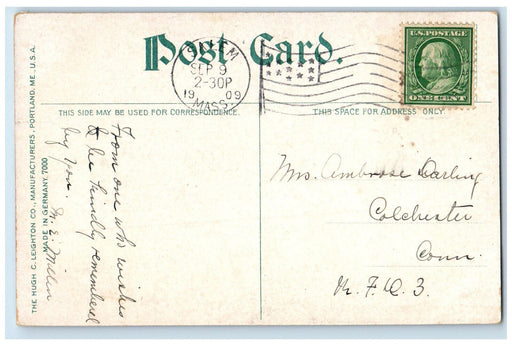 Post Card.
SALEM
SEP 9
2-30P
19 09
MASS.
U.S. POSTAGE
ONE CENT
THIS SIDE MAY BE USED FOR CORRESPONDENCE.
THIS SPACE FOR ADDRESS ONLY
THE HUGH C. LEIGHTON CO., MANUFACTURERS, PORTLAND, ME., U.S.A.
MADE IN GERMANY. 7000
From one who wishes
to be kindly remembered
by you.
M. E.
Mrs. Ambrose Darling
Colchester
Conn.
R. F. D. 3.